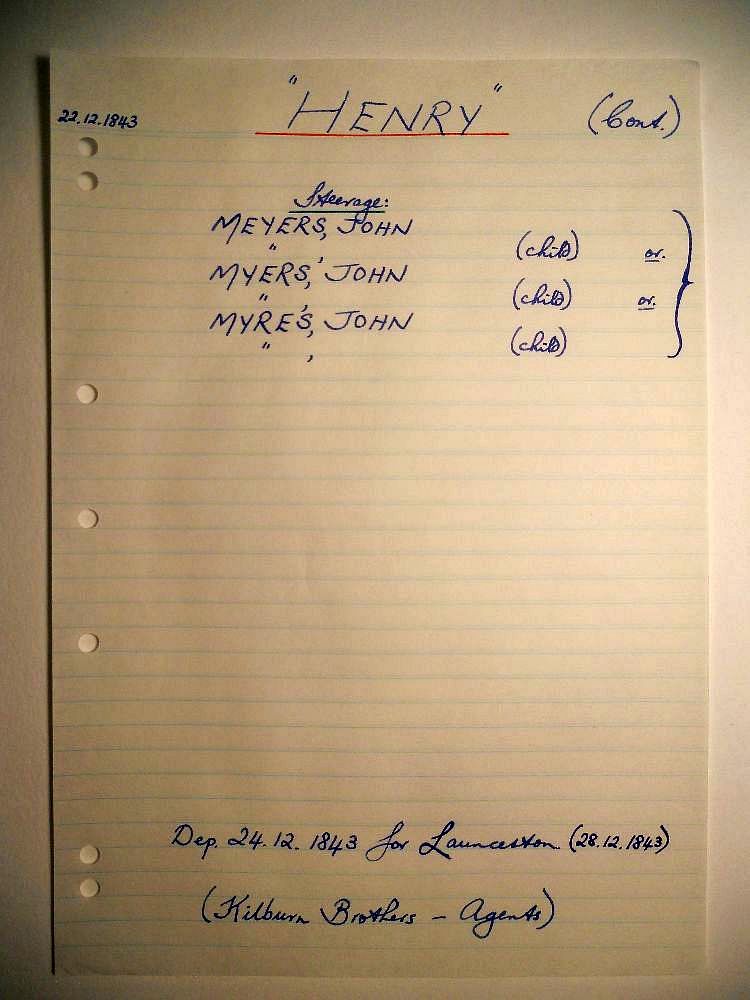 22.12.1843 "HENRY" (Cont.)
Steerage:
MEYERS, JOHN
" , (child) or.
MYERS, JOHN
" , (child) or.
MYRES, JOHN
" , (child)
Dep. 24.12.1843 for Launceston (28.12.1843)
(Kilburn Brothers - Agents)